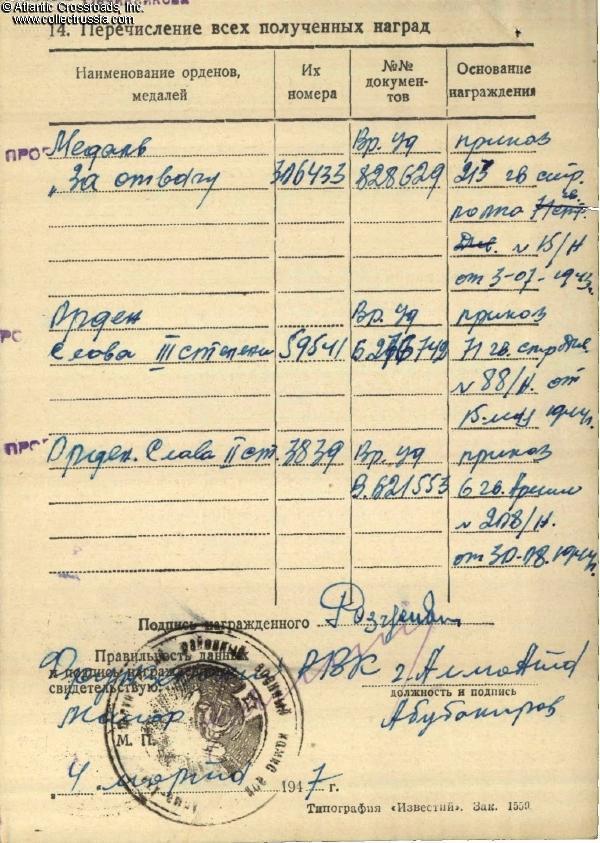 © Atlantic Crossroads, Inc.
www.collectrussia.com
14. Перечисление всех полученных наград
Наименование орденов, медалей
Их номера
№№ документов
Основание награждения
Медаль Вр. уд приказ
„За отвагу 306433 828629 213 гв стр.
полка
№ 15/н
от 3-07-1943г.
Орден Вр. уд приказ
Слава III степени 59541 71 гв. стр
№ 88/н. от
15 мая 1944г.
Орден. Слава II ст. 3839 Вр. уд приказ
В.621553 6 гв. Армии
№ 208/н.
от 30-08.1944г.
Подпись награжденного
Правильность данных
и подпись награжденного
свидетельствую:
РВК г. Алма Ата
должность и подпись
Майор Абубакиров
М. П.
4 марта 1947 г.
Типография «Известий». Зак. 1559.